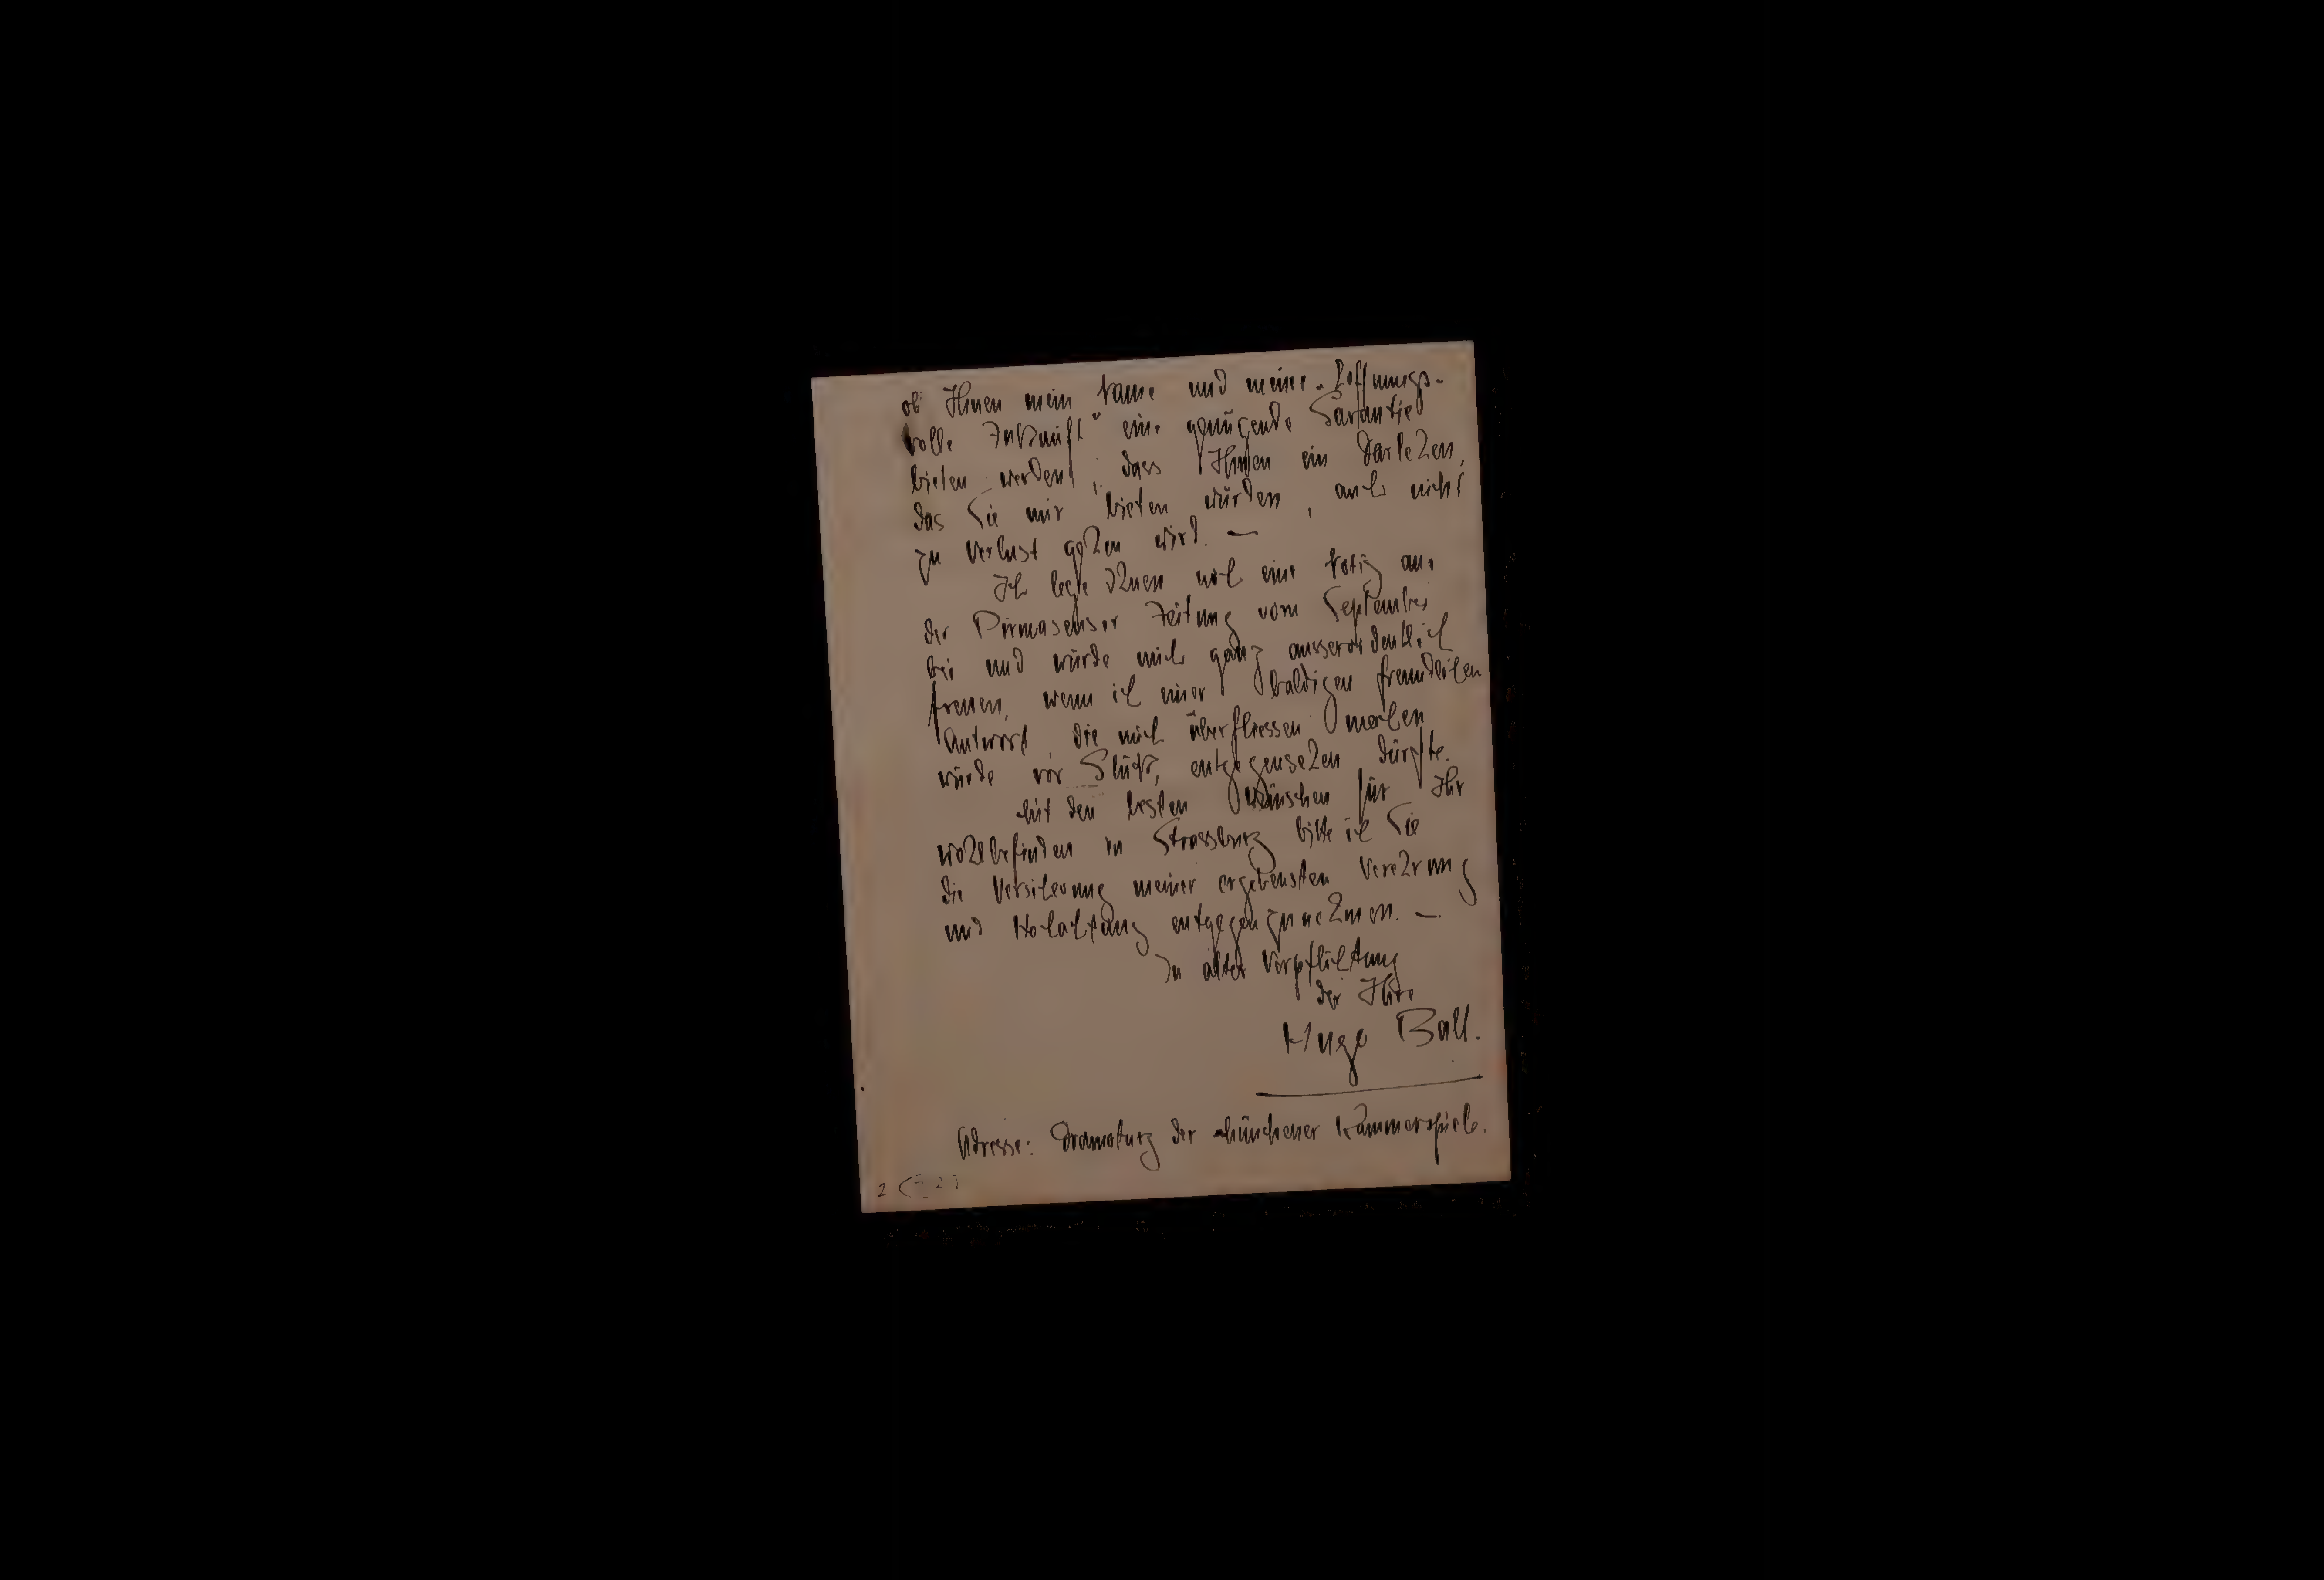 ob Ihnen mein Name und meine „hoffnungs-
volle Zukunft“ eine genügende Garantie
bieten werden, dass Ihnen ein Darlehen,
das Sie mir bieten würden, auch nicht
zu Verlust gehen wird. —
Ich lege Ihnen noch eine Notiz aus
der Pirmasenser Zeitung vom September
bei und würde mich ganz ausserordentlich
freuen, wenn ich einer baldigen freundlichen
Antwort, die mich überfliessen machen
würde vor Glück, entgegensehen dürfte.
Mit den besten Wünschen für Ihr
Wohlbefinden in Strassburg bitte ich Sie
die Versicherung meiner ergebensten Verehrung
und Hochachtung entgegenzunehmen. —
In alter Verpflichtung
der Ihre
Hugo Ball.
Adresse: Dramaturg der Münchener Kammerspiele.
2